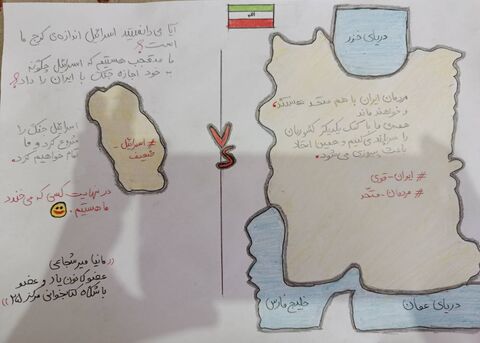 دریای خزر
مردمان ایران با هم متحد هستند
و خواهند ماند
همه‌ی ما با کمک یکدیگر کشورمان
را سربلند می‌کنیم و همین اتحاد
باعث پیروزی می‌شود.
# ایران-قوی
# مردمان-متحد
خلیج فارس
دریای عمان
VS
آیا می‌دانستید اسرائیل اندازه‌ی کرج ما
است؟
ما متعجب هستیم که اسرائیل چگونه
به خود اجازه جنگ با ایران را داد؟
# اسرائیل-
ضعیف
اسرائیل جنگ را
شروع کرد و ما
تمام خواهیم کرد.
در نهایت کسی که می‌خندد
ما هستیم.
«مانیا میرشجاعی
عضو کانون یاد و عضو
باشگاه کتابخوانی مرکز ۲۵»